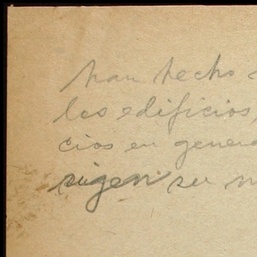 han hecho
los edificios,
cios en genera
rigen su